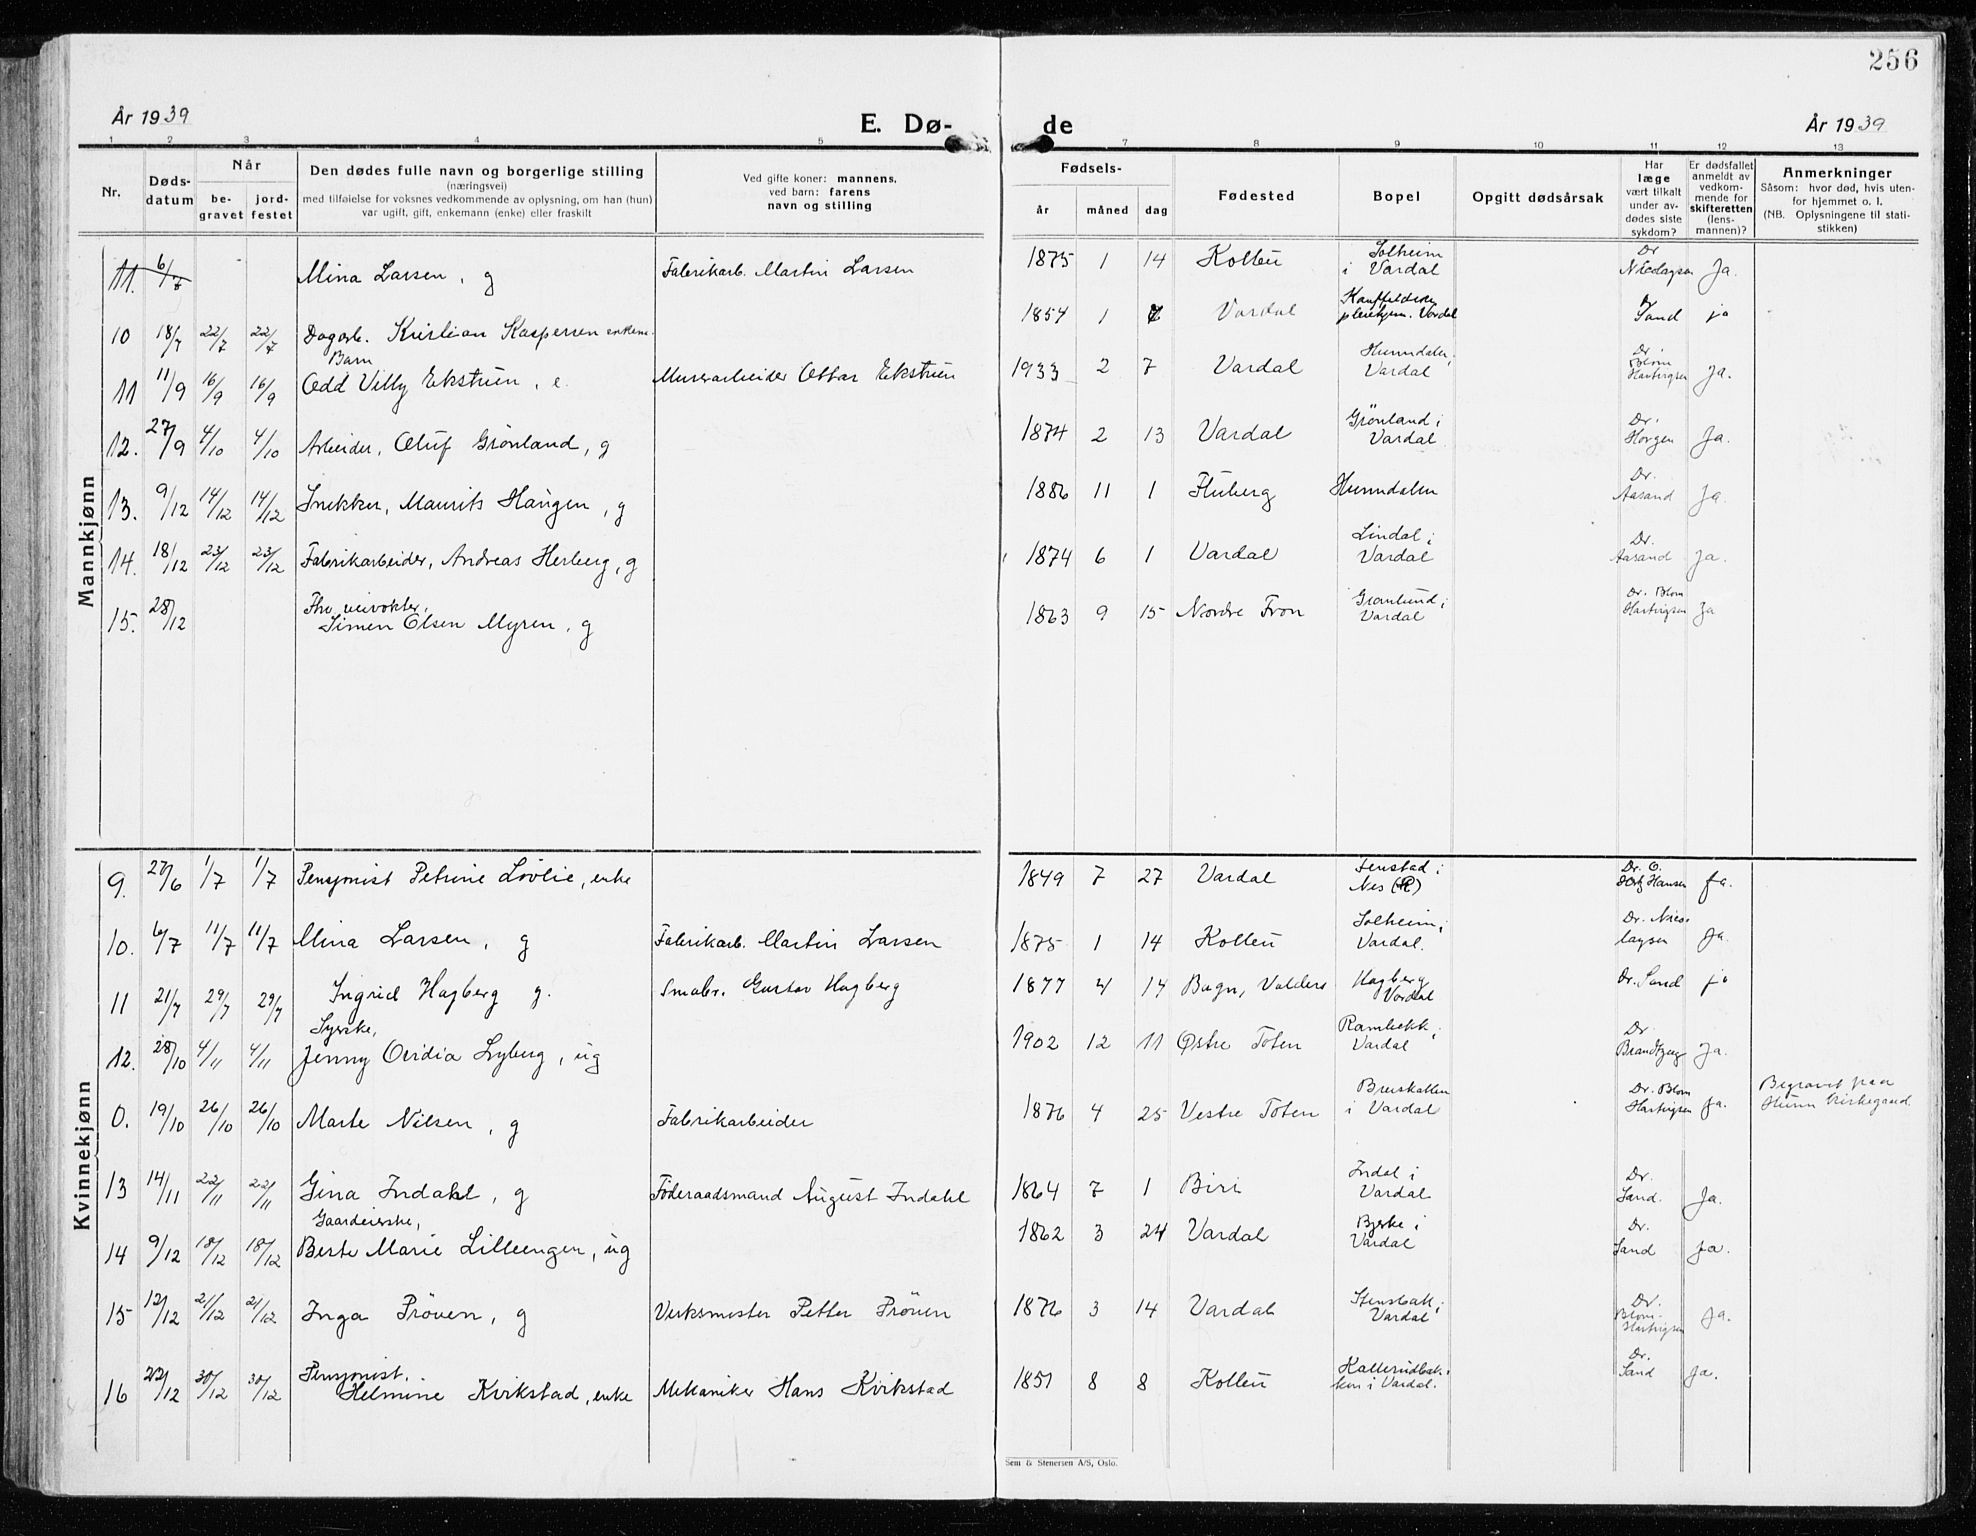 256
År 1939
E. Dø-
de
År 1939
1 2 3 4 5 7 8 9 10 11 12 13
Nr.
Døds-
datum
Når
be-
gravet
jord-
festet
Den dødes fulle navn og borgerlige stilling
(næringsvei)
med tilføielse for voksnes vedkommende av oplysning, om han (hun)
var ugift, gift, enkemann (enke) eller fraskilt
Ved gifte koner: mannens,
ved barn: farens
navn og stilling
Fødsels-
år måned dag
Fødested
Bopel
Opgitt dødsårsak
Har
læge
vært tilkalt
under av-
dødes siste
sykdom?
Er dødsfallet
anmeldt av
vedkom-
mende for
skifteretten
(lens-
mannen)?
Anmerkninger
Såsom: hvor død, hvis uten-
for hjemmet o. l.
(NB. Oplysningene til stati-
stikken)
Mannkjønn
11. 6/7 Mina Larsen, g Fabrikarb. Martin Larsen 1875 1 14 Kolbu Solheim i Vardal Dr Nicolaysen Ja.
10 18/7 22/7 22/7 Dagarb. Kristian Kaspersen enkem. 1854 1 Vardal pleiehjem. Vardal Sand ja
11 11/9 16/9 16/9 Barn Odd Villy Ekstrøm, e. Murerarbeider Ottar Ekstrøm 1933 2 7 Vardal Hunndalen, Vardal Dr. Blom Hartvigsen Ja.
12. 27/9 4/10 4/10 Arbeider, Oluf Grönland, g 1874 2 13 Vardal Grönland i Vardal Dr. Horgen Ja.
13. 9/12 14/12 14/12 Snekker, Maurits Haugen, g 1886 11 1 Fluberg Hunndalen Dr. Aasand Ja.
14. 18/12 23/12 23/12 Fabrikarbeider, Andreas Herberg, g 1874 6 1 Vardal Lindal i Vardal Dr. Aasand Ja.
15. 28/12 Fhv. veivokter, Simen Olsen Myren, g 1863 9 15 Nordre Fron Granlund i Vardal Dr. Blom Hartvigsen Ja
Kvinnekjønn
9. 27/6 1/7 1/7 Pensjonist Petrine Lövlie, enke 1849 7 27 Vardal Tenstad i Nes (R) Dr. O. Hansen Ja.
10. 6/7 11/7 11/7 Mina Larsen, g Fabrikarb. Martin Larsen 1875 1 14 Kolbu Solheim i Vardal. Dr. Nico- laysen Ja.
11 21/7 29/7 29/7 Ingrid Hagberg g. Smabr. Gustav Hagberg 1877 4 14 Bagn, Valdres Hagberg Vardal Dr. Sand ja
12. 28/10 4/11 4/11 Syerske, Jenny Ovidia Lyberg, ug 1902 12 11 Østre Toten Rambekk i Vardal Dr. Brandtzæg Ja.
0. 19/10 26/10 26/10 Marte Nilsen, g Fabrikarbeider 1876 4 25 Vestre Toten Breiskallen i Vardal Dr. Blom Hartvigsen Ja. Begravet paa Hunn kirkegaard.
13 14/11 22/11 22/11 Gina Indahl, g Föderaadsmand August Indahl 1864 7 1 Biri Indal i Vardal Dr. Sand. Ja.
14 9/12 18/12 18/12 Gaardeierske, Berte Marie Lilleengen, ug 1862 3 24 Vardal Bjerke i Vardal Dr. Sand Ja.
15 12/12 21/12 21/12 Inga Pröven, g Verksmester Petter Pröven 1876 3 14 Vardal Stensbak i Vardal Dr. Blom- Hartvigsen Ja.
16 22/12 30/12 30/12 Pensjonist, Helmine Kvikstad, enke Mekaniker Hans Kvikstad 1851 8 8 Kolbu Kallerudbak- ken i Vardal. Dr. Sand Ja.
Sem & Stenersen A/S, Oslo.